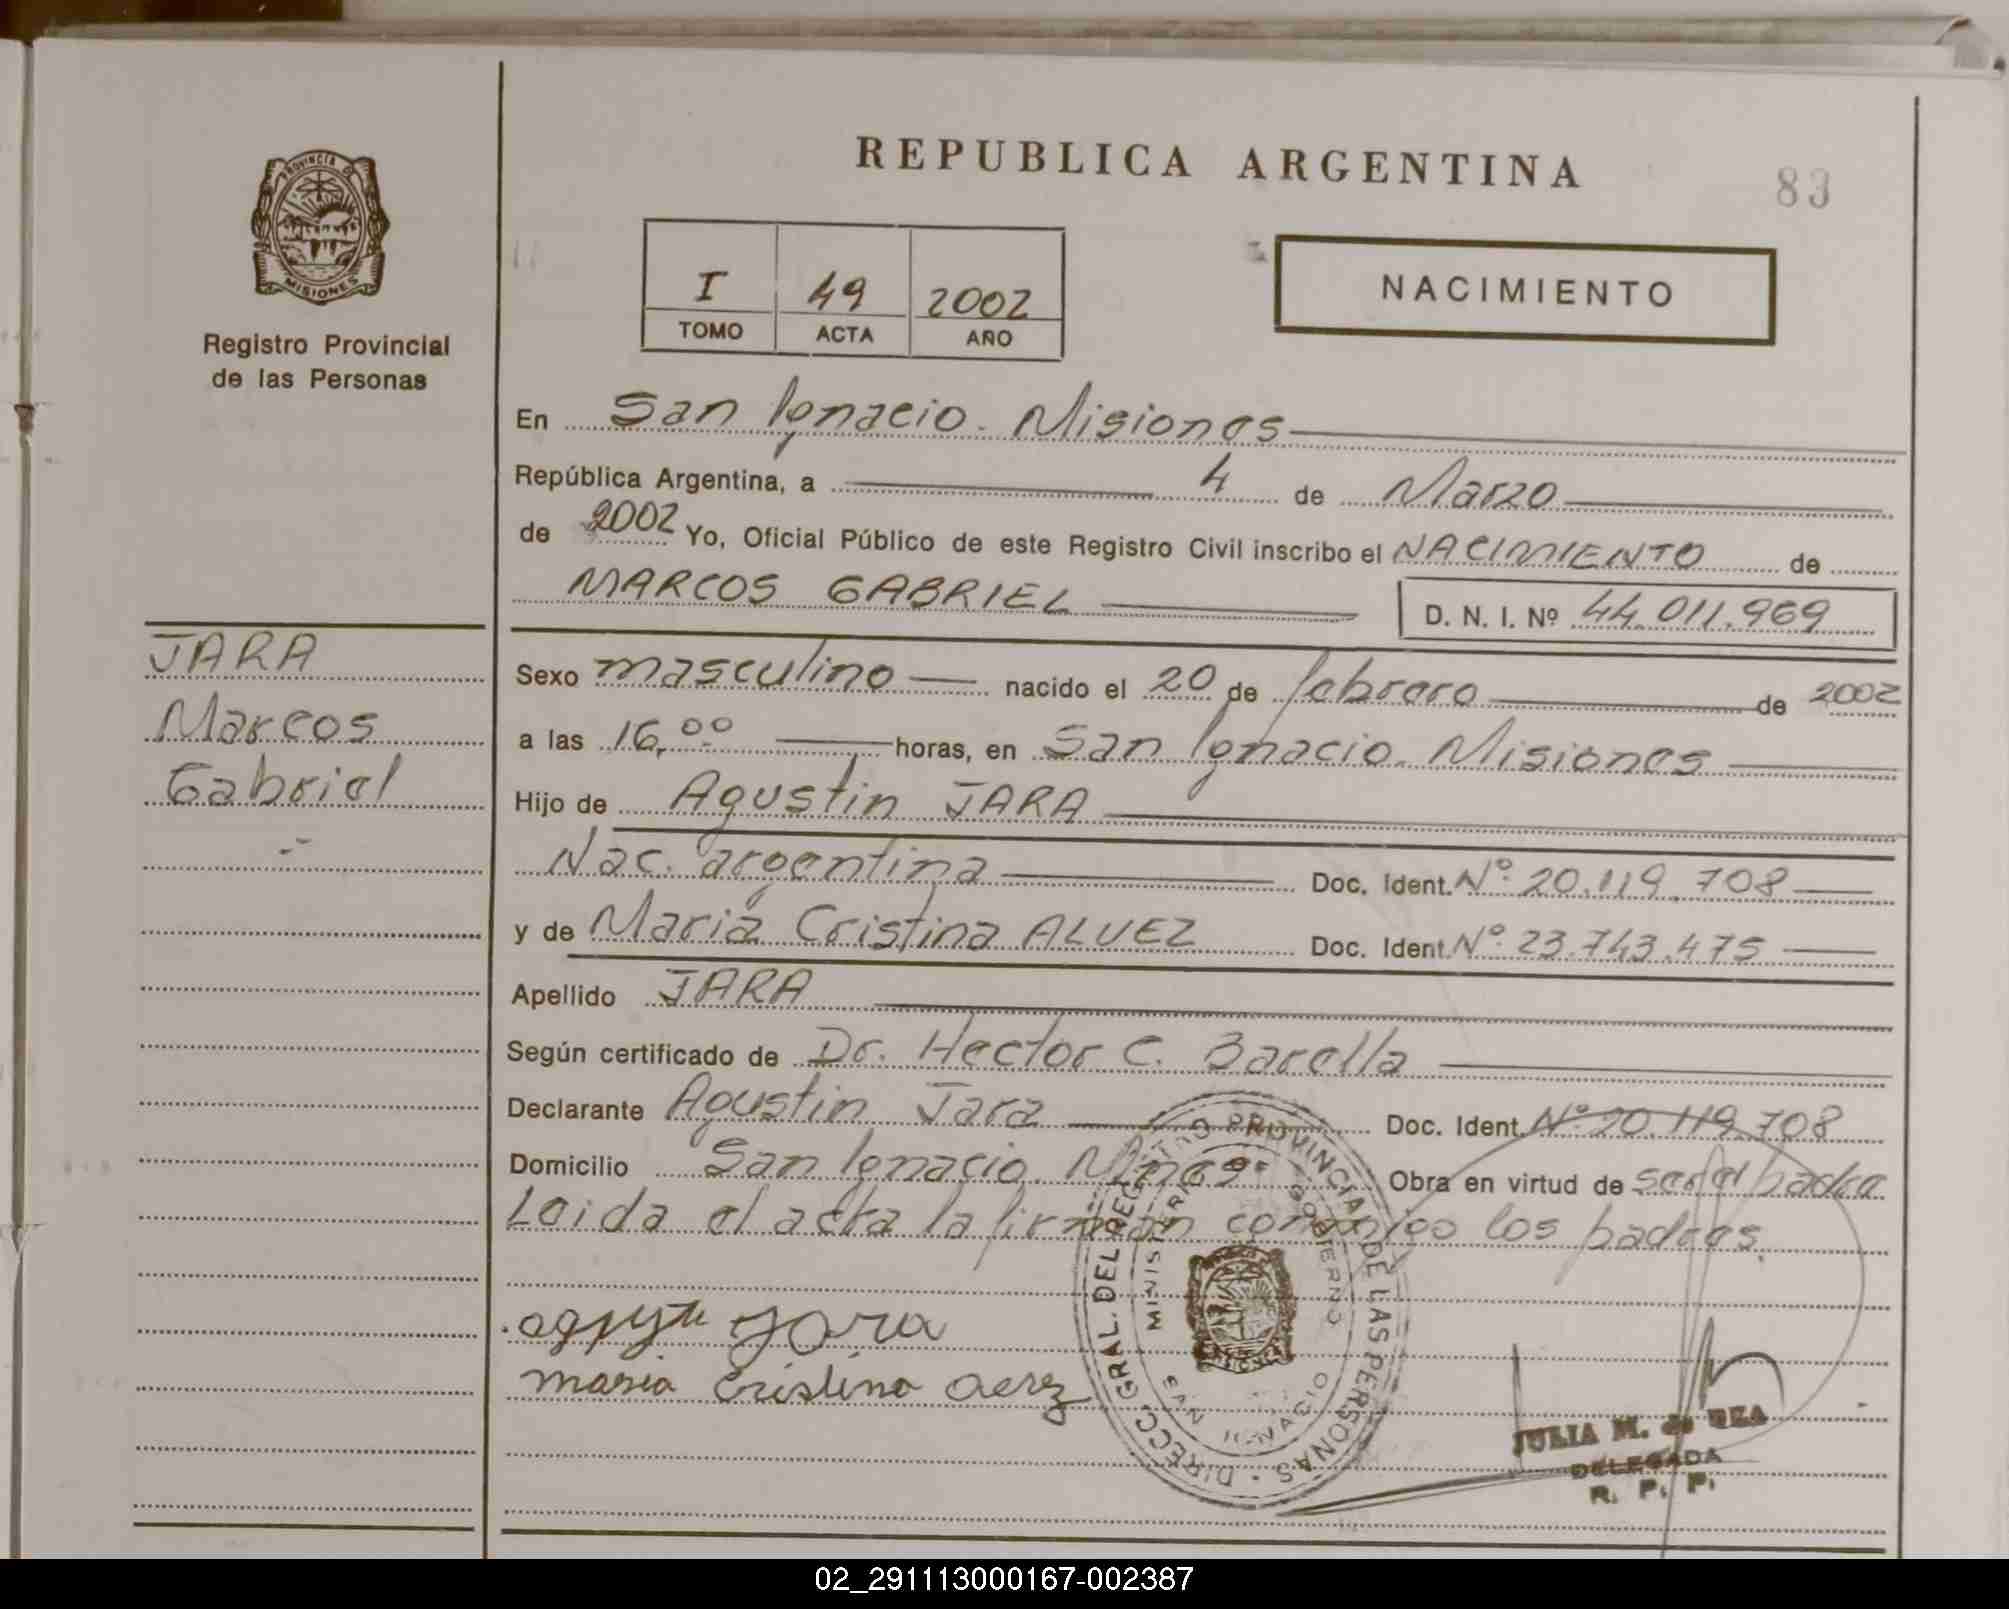 REPUBLICA ARGENTINA
83
PROVINCIA DE
MISIONES
Registro Provincial
de las Personas
I 49 2002
TOMO ACTA AÑO
NACIMIENTO
En San Ignacio. Misiones
República Argentina, a 4 de Marzo
de 2002 Yo, Oficial Público de este Registro Civil inscribo el NACIMIENTO de
MARCOS GABRIEL D. N. I. Nº 44.011.969
JARA
Marcos
Gabriel
Sexo masculino nacido el 20 de febrero de 2002
a las 16,00 horas, en San Ignacio. Misiones
Hijo de Agustin JARA
Nac. argentina Doc. Ident. Nº 20.119.708
y de Maria Cristina ALVEZ Doc. Ident. Nº 23.743.475
Apellido JARA
Según certificado de Dr. Hector C. Barella
Declarante Agustin Jara Doc. Ident. Nº 20.119.708
Domicilio San Ignacio. Mnes Obra en virtud de ser el padre
Leida el acta la firman conmigo los padres.
Jara
maria cristina
DIRECC. GRAL. DEL REGISTRO PROVINCIAL DE LAS PERSONAS
MINISTERIO DE GOBIERNO
SAN IGNACIO
JULIA M. de REA
DELEGADA
R. P. P.
02_291113000167-002387